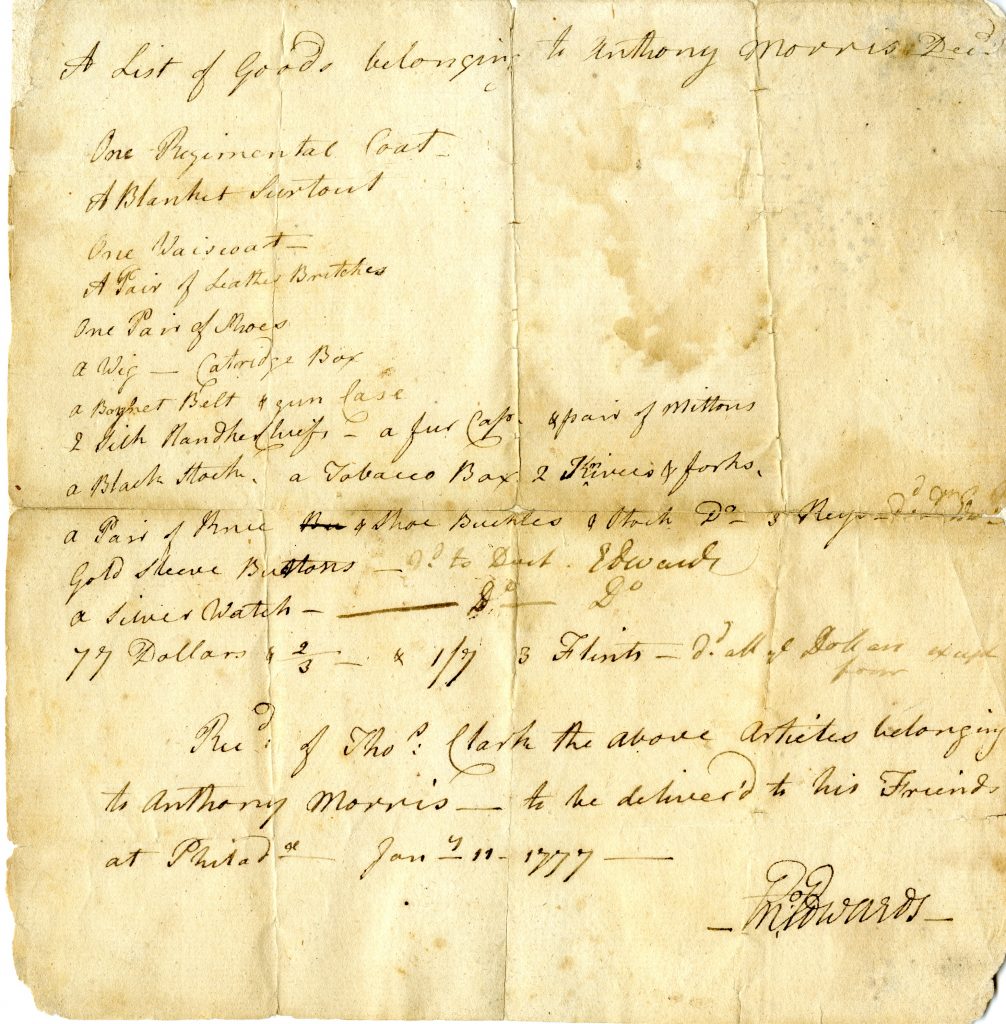 A List of Goods belonging to Anthony Morris Decd
One Regimental Coat –
A Blanket Surtout
One Waiscoat –
A Pair of Leather Britches
One Pair of Shoes
a Wig — Catridge Box
a Baynet Belt & gun Case
2 Silk Handkerchiefs – a fur Cap & pair of Mittons
a Black Stock. a Tobacco Box 2 Knives & forks.
a Pair of Knee & Shoe Buckles & Stock Do – 3 Keys –
Gold Sleeve Buttons – Dd to Doct. Edwards
a Silver Watch – —— Do — Do
77 Dollars & 2/3 – & 1/7 3 Flints – Dd all ye Dollars except
four
Recd: of Thos: Clark the above Articles belonging
to Anthony Morris — to be deliver'd to his Friends
at Philade — Jany 11 – 1777 —
– Edwards –